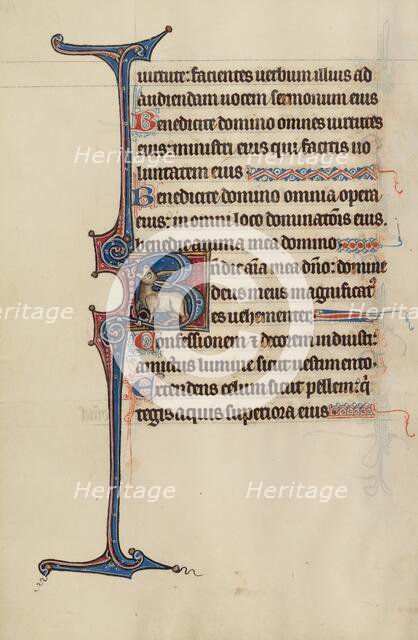 uirtute: facientes uerbum illius ad
audiendam uocem sermonum eius
Benedicite domino omnes uirtutes
eius: ministri eius qui facitis uo
luntatem eius
Benedicite domino omnia opera
eius: in omni loco dominatōis eius
benedic anima mea domino
Benedic aīa mea dn̄o: domine
deus meus magnificatꝰ
es uehementer
Confessionem ⁊ decorem induisti:
amictus lumine sicut uestimento
Extendens celum sicut pellem: q̄
tegis aquis superiora eius
Heritage Heritage Heritage
Heritage Heritage Heritage
Heritage Heritage Heritage